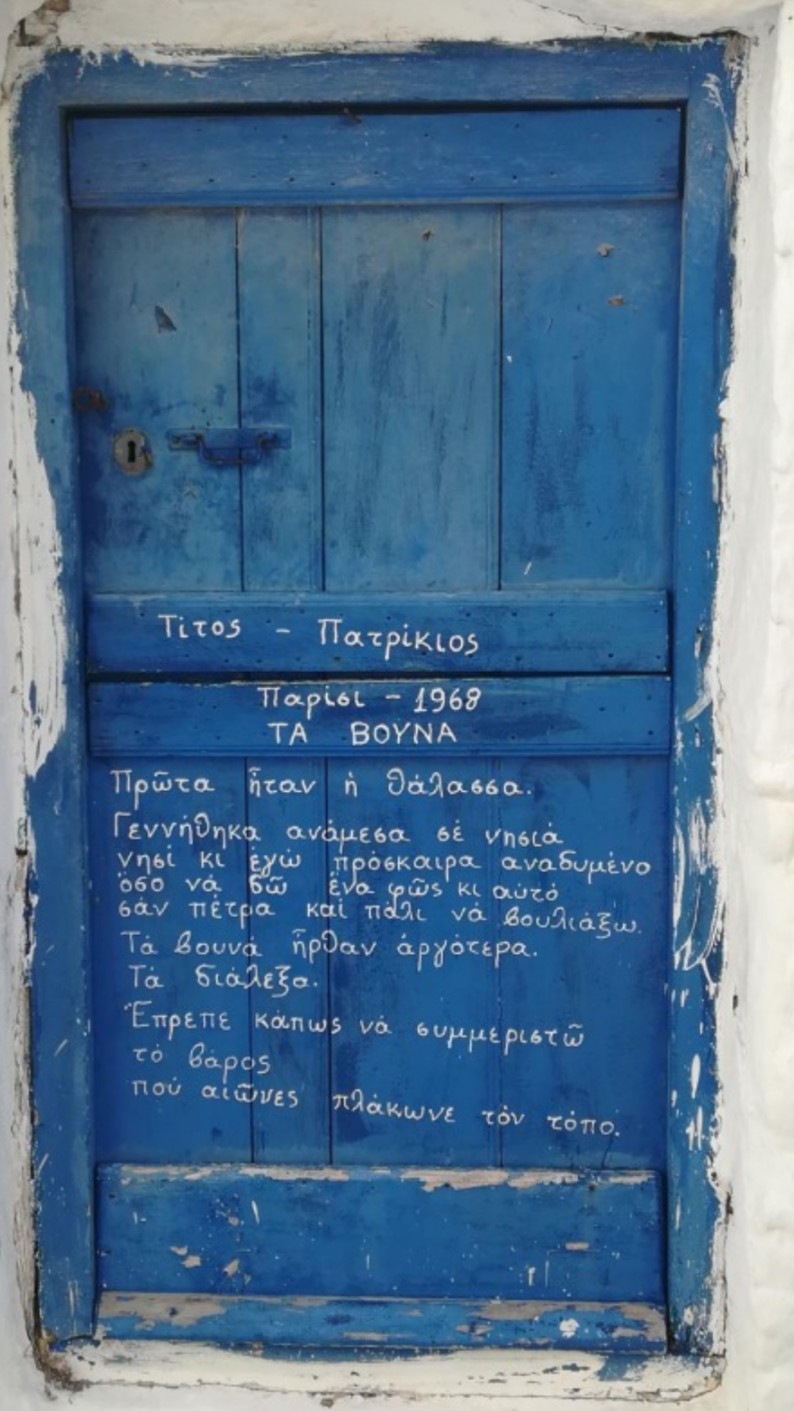 Τίτος - Πατρίκιος
Παρίσι - 1968
ΤΑ ΒΟΥΝΑ
Πρῶτα ἦταν ἡ θάλασσα.
Γεννήθηκα ανάμεσα σέ νησιά
νησί κι ἐγώ πρόσκαιρα αναδυμένο
ὅσο νά δῶ ἕνα φῶς κι αὐτό
σάν πέτρα καί πάλι νά βουλιάξω.
Τά βουνά ἦρθαν ἀργότερα.
Τά διάλεξα.
Ἔπρεπε κάπως νά συμμεριστῶ
τό βάρος
πού αιῶνες πλάκωνε τόν τόπο.